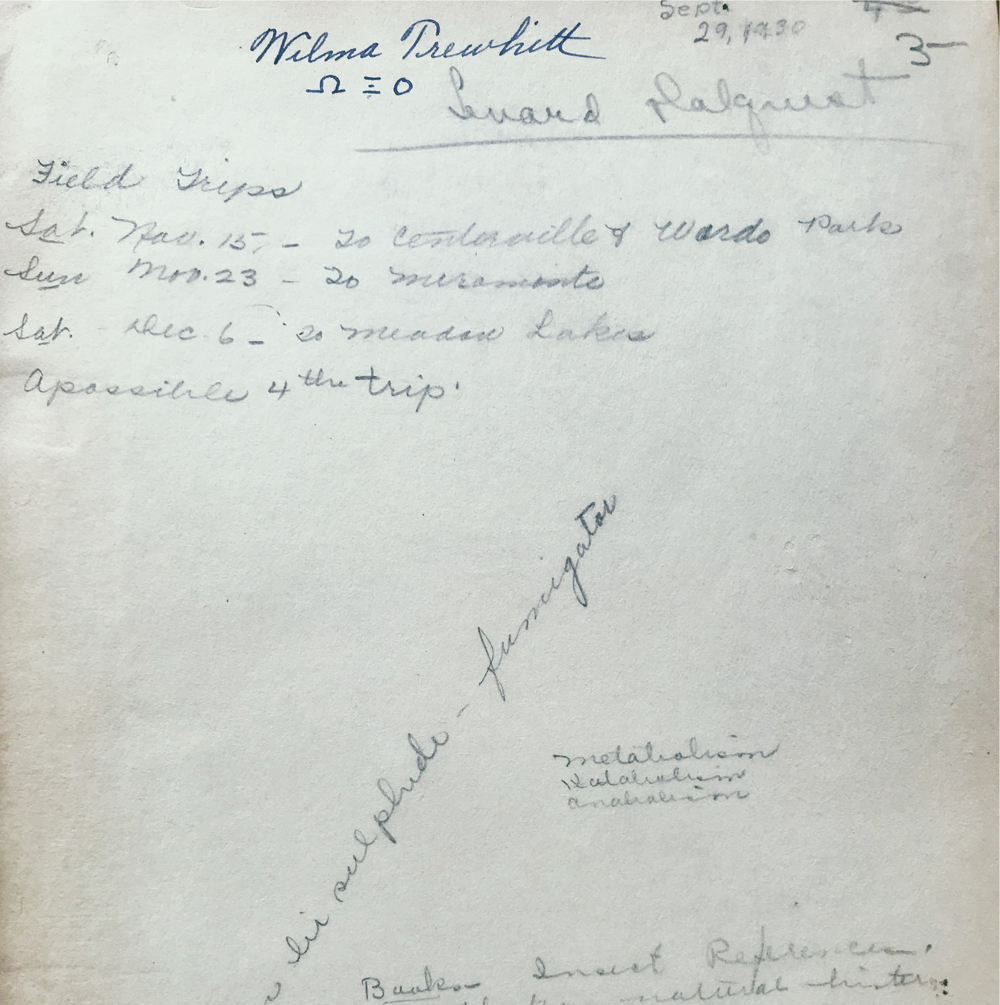 Sept.
29, 1930
3-
Wilma Trewhitt
Ω Ξ O
Lenard Dalquest
Field Trips
Sat. Nov. 15, - To Centerville & Wards Park
Sun Nov. 23 - To Miramonte
Sat. Dec. 6 - to Meadow Lakes
A possible 4th trip.
sulphide - fumigator
Metabolism
Katabolism
anabolism
Books - Insect References.
natural